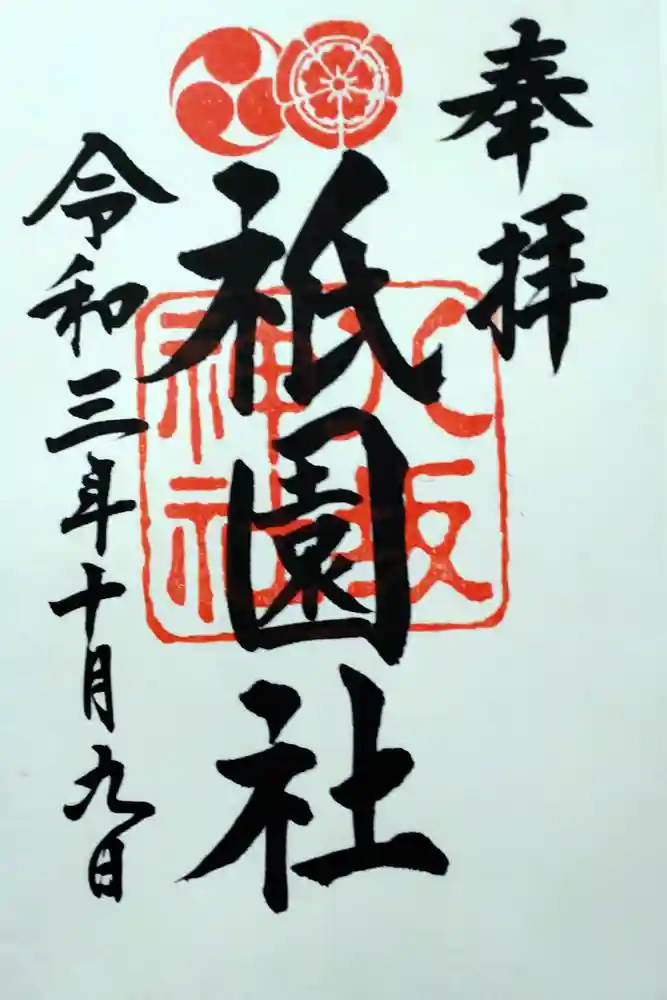 奉拝
祇園社
八坂
神社
令和三年十月九日